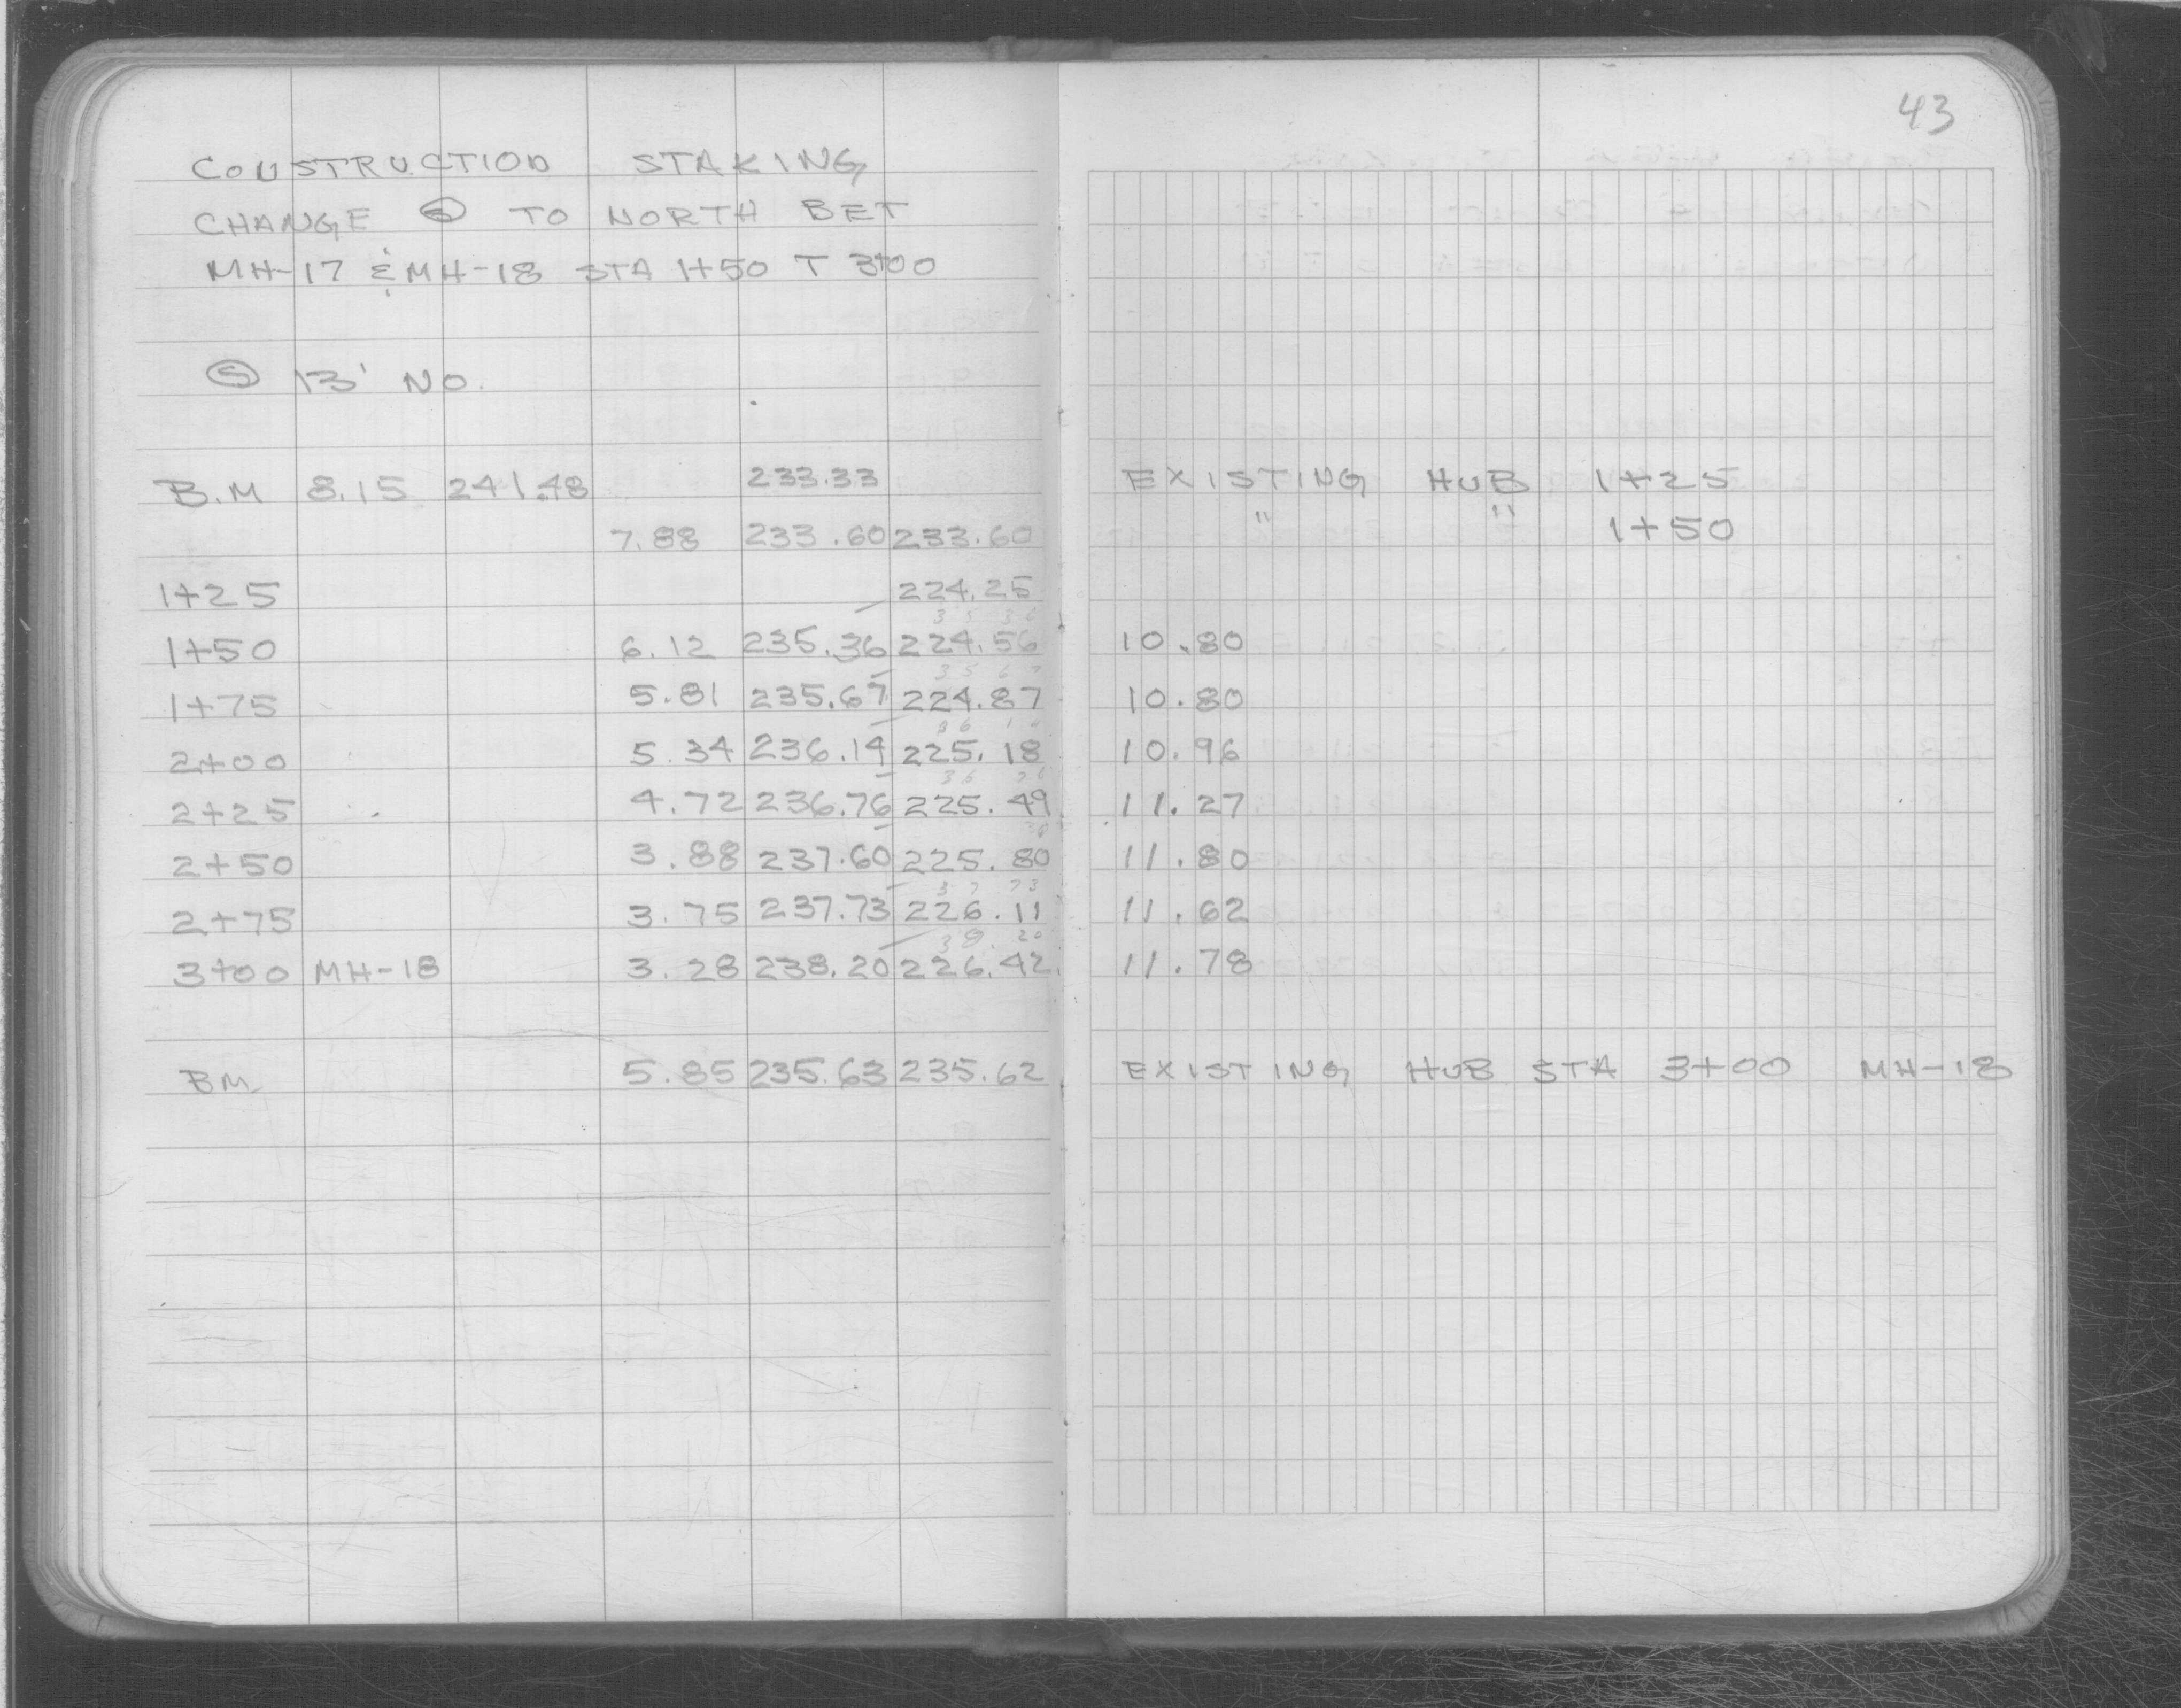 43
CONSTRUCTION STAKING
CHANGE Ⓢ TO NORTH BET
MH-17 & MH-18 STA 1+50 T 3+00
Ⓢ 13' NO.
B.M 8.15 241.48 233.33 EXISTING HUB 1+25
7.88 233.60 233.60 " " 1+50
1+25 224.25
3 5 3 6
1+50 6.12 235.36 224.56 10.80
3 5 6 7
1+75 5.81 235.67 224.87 10.80
3 6 1 4
2+00 5.34 236.14 225.18 10.96
3 6 7 6
2+25 4.72 236.76 225.49 11.27
2+50 3.88 237.60 225.80 11.80
3 7 7 3
2+75 3.75 237.73 226.11 11.62
3 8. 20
3+00 MH-18 3.28 238.20 226.42 11.78
BM 5.85 235.63 235.62 EXISTING HUB STA 3+00 MH-18